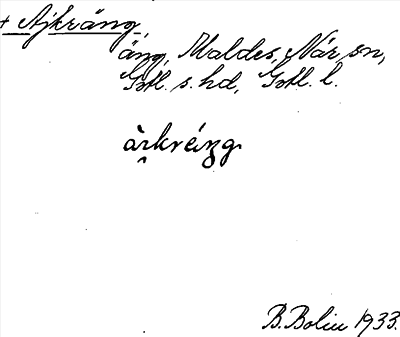 + Ajkräng,
äng, Maldes, När sn,
Gotl. s. hd, Gotl. l.
àrkréŋg
B. Bolin 1933.